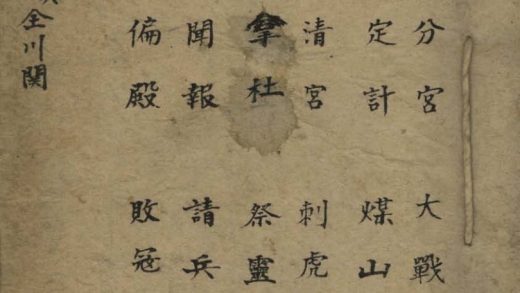 分宮 大戰
定計 煤山
清宮 刺虎
拿杜 祭靈
聞報 請兵
偏殿 敗冠
全川関